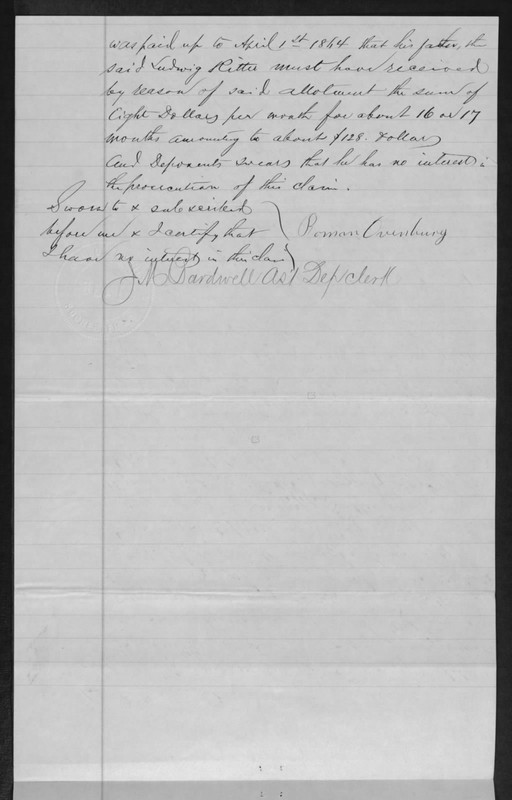 was paid up to April 1st 1864 that his father, the
said Ludwig Ritter must have received
by reason of said allotment the sum of
Eight Dollars per month for about 16 or 17
months amounting to about $128. Dollars
And Deponents swears that he has no interest in
the prosecution of this claim.
Sworn to & subscribed
before me & I certify that
I have no interest in this claim
Roman Overburg
J M Bardwell Ast Dep clerk